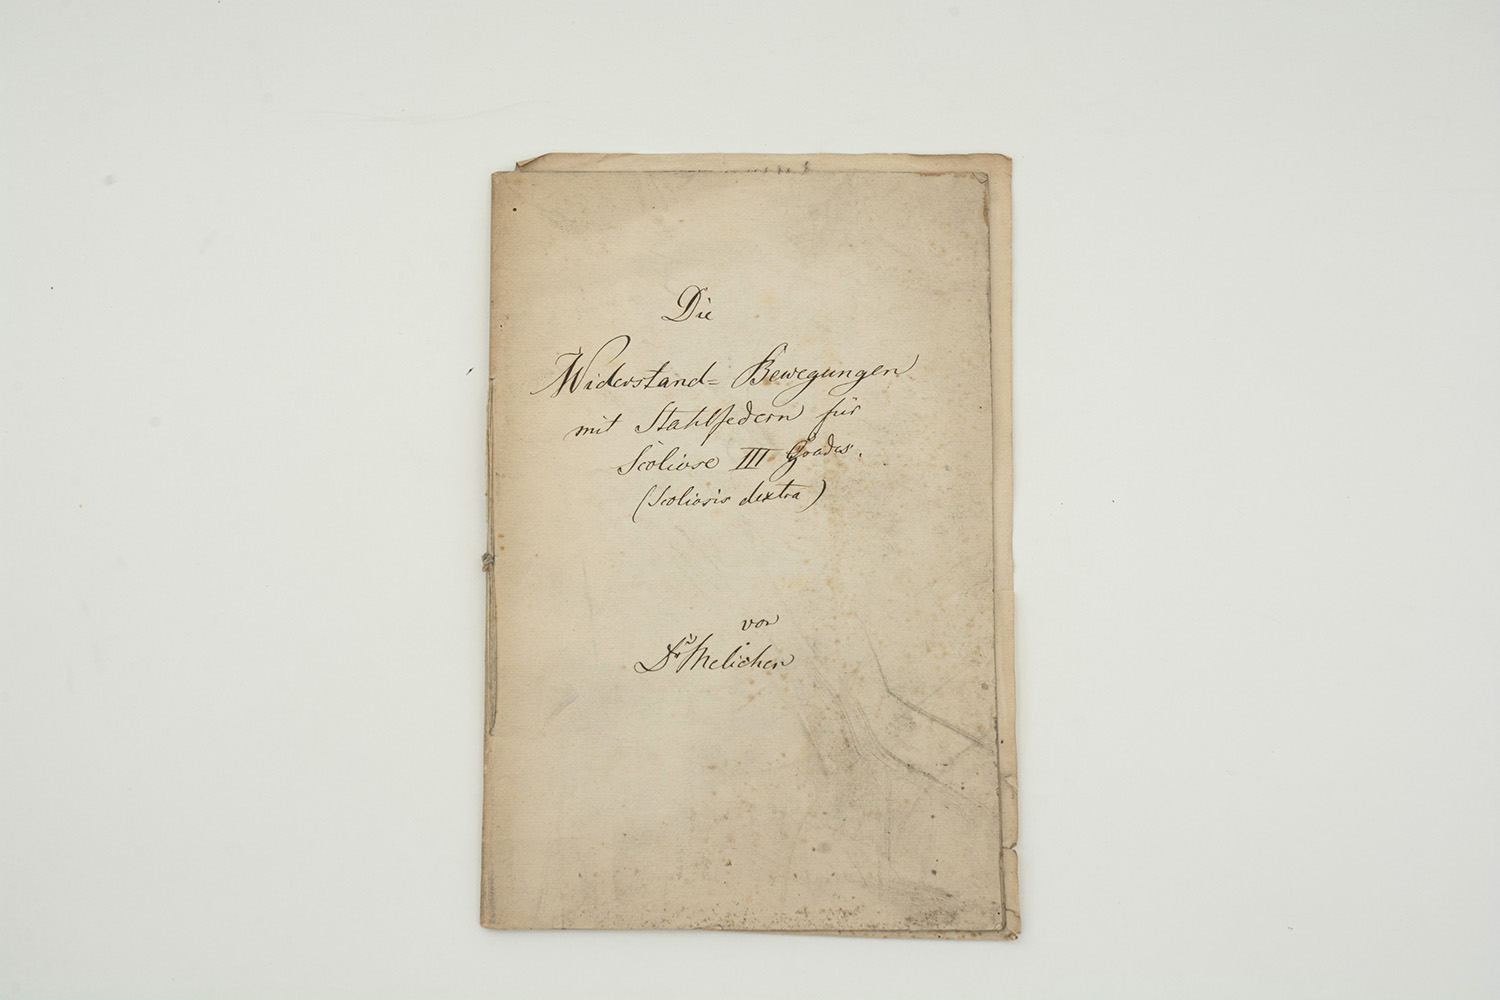 Die
Widerstand= Bewegungen
mit Stahlfedern für
Scoliose III Grades.
(Scoliosis dextra)
von
Dr Melicher